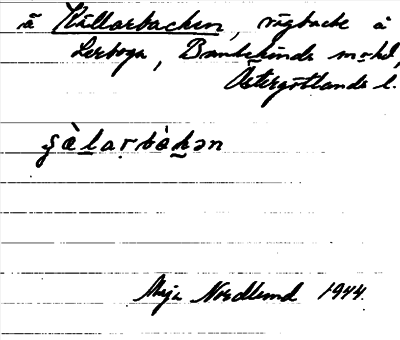 å Källarbacken, vägbacke å
Lerboga, Bankekinds mshd,
Östergötlands l.
ʂὰlaṛbὰkən
Maja Nordlund 1944.